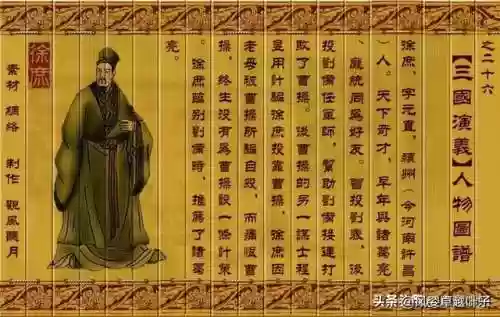 之二十六
【三國演義】人物圖譜
徐庶，字元直，潁州（今河南許昌
）人。天下奇才，早年與諸葛亮
、龐統同爲好友。曾投劉表，後
投劉備任軍師，幫助劉備接連打
敗了曹操。後曹操的另一謀士程
昱用計騙徐庶投靠曹操，徐庶因
老母被曹操所騙自殺，而痛恨曹
操，終生沒有爲曹操設一條計策
。徐庶臨别劉備時，推薦了諸葛
亮。
徐庶
素材 網絡 制作 觀風聽月
头条 @卓越叶子